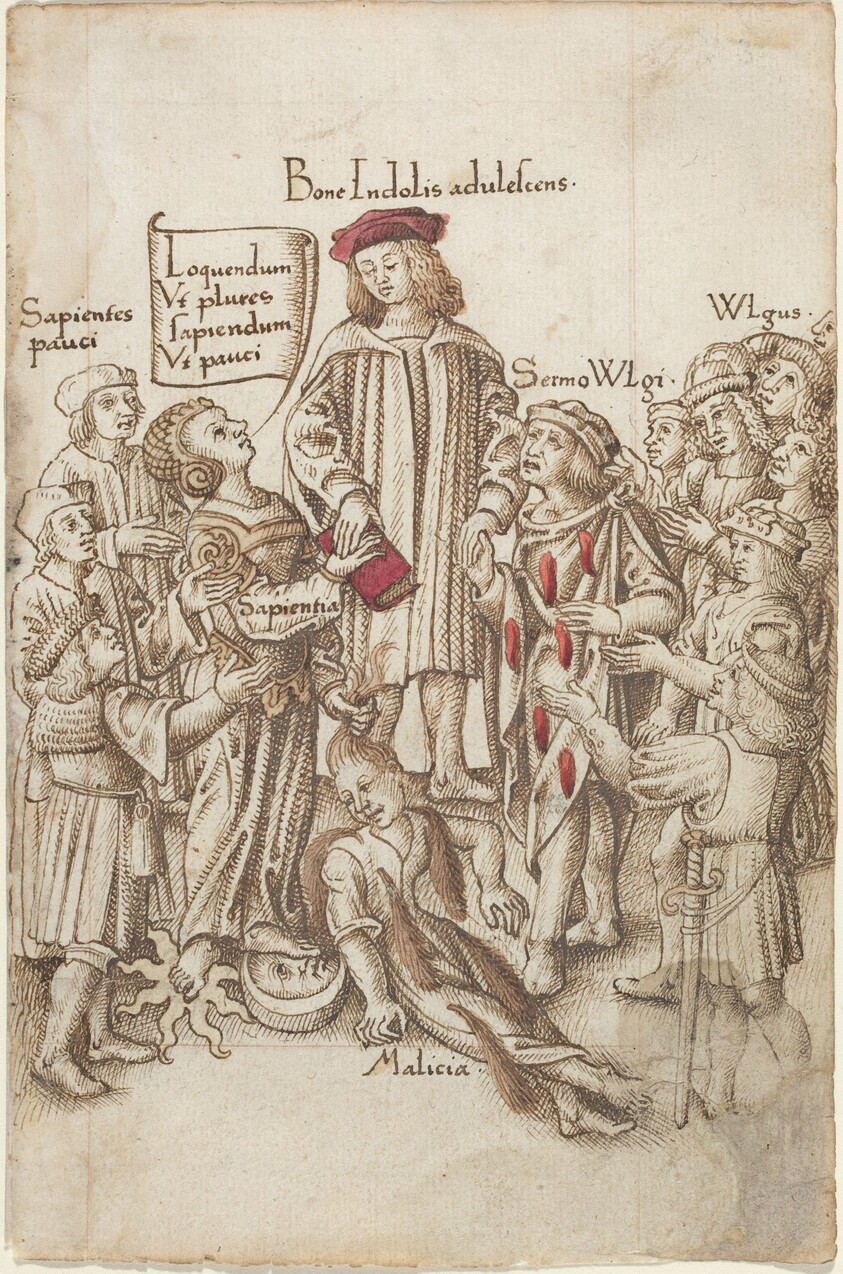 Bone Indolis adulescens.
Loquendum
Vt plures
sapiendum
Vt pauci
Sapientes
pauci
WLgus.
Sermo WLgi.
Sapientia
Malicia.